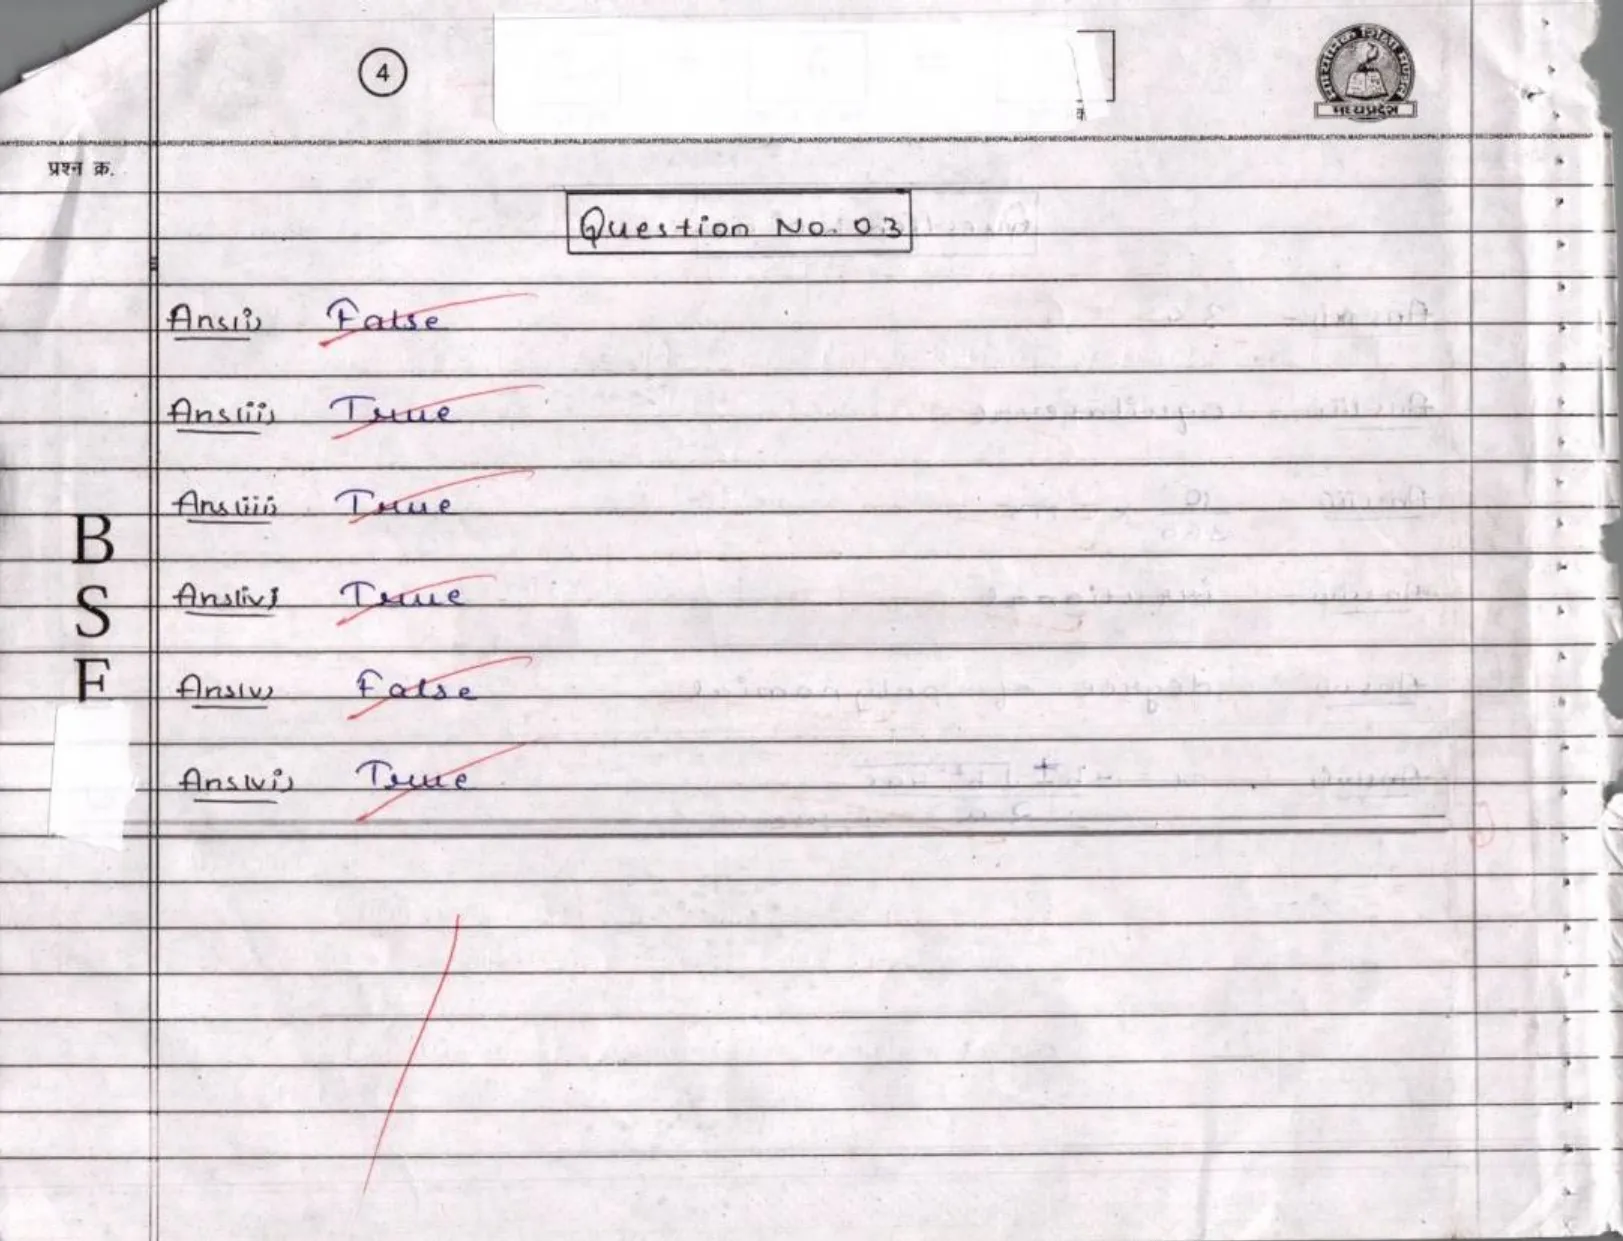 4
माध्यमिक शिक्षा मण्डल
मध्यप्रदेश
प्रश्न क्र.
Question No. 03
Ans(i) False
Ans(ii) True
Ans(iii) True
Ans(iv) True
Ans(v) False
Ans(vi) True
B
S
E